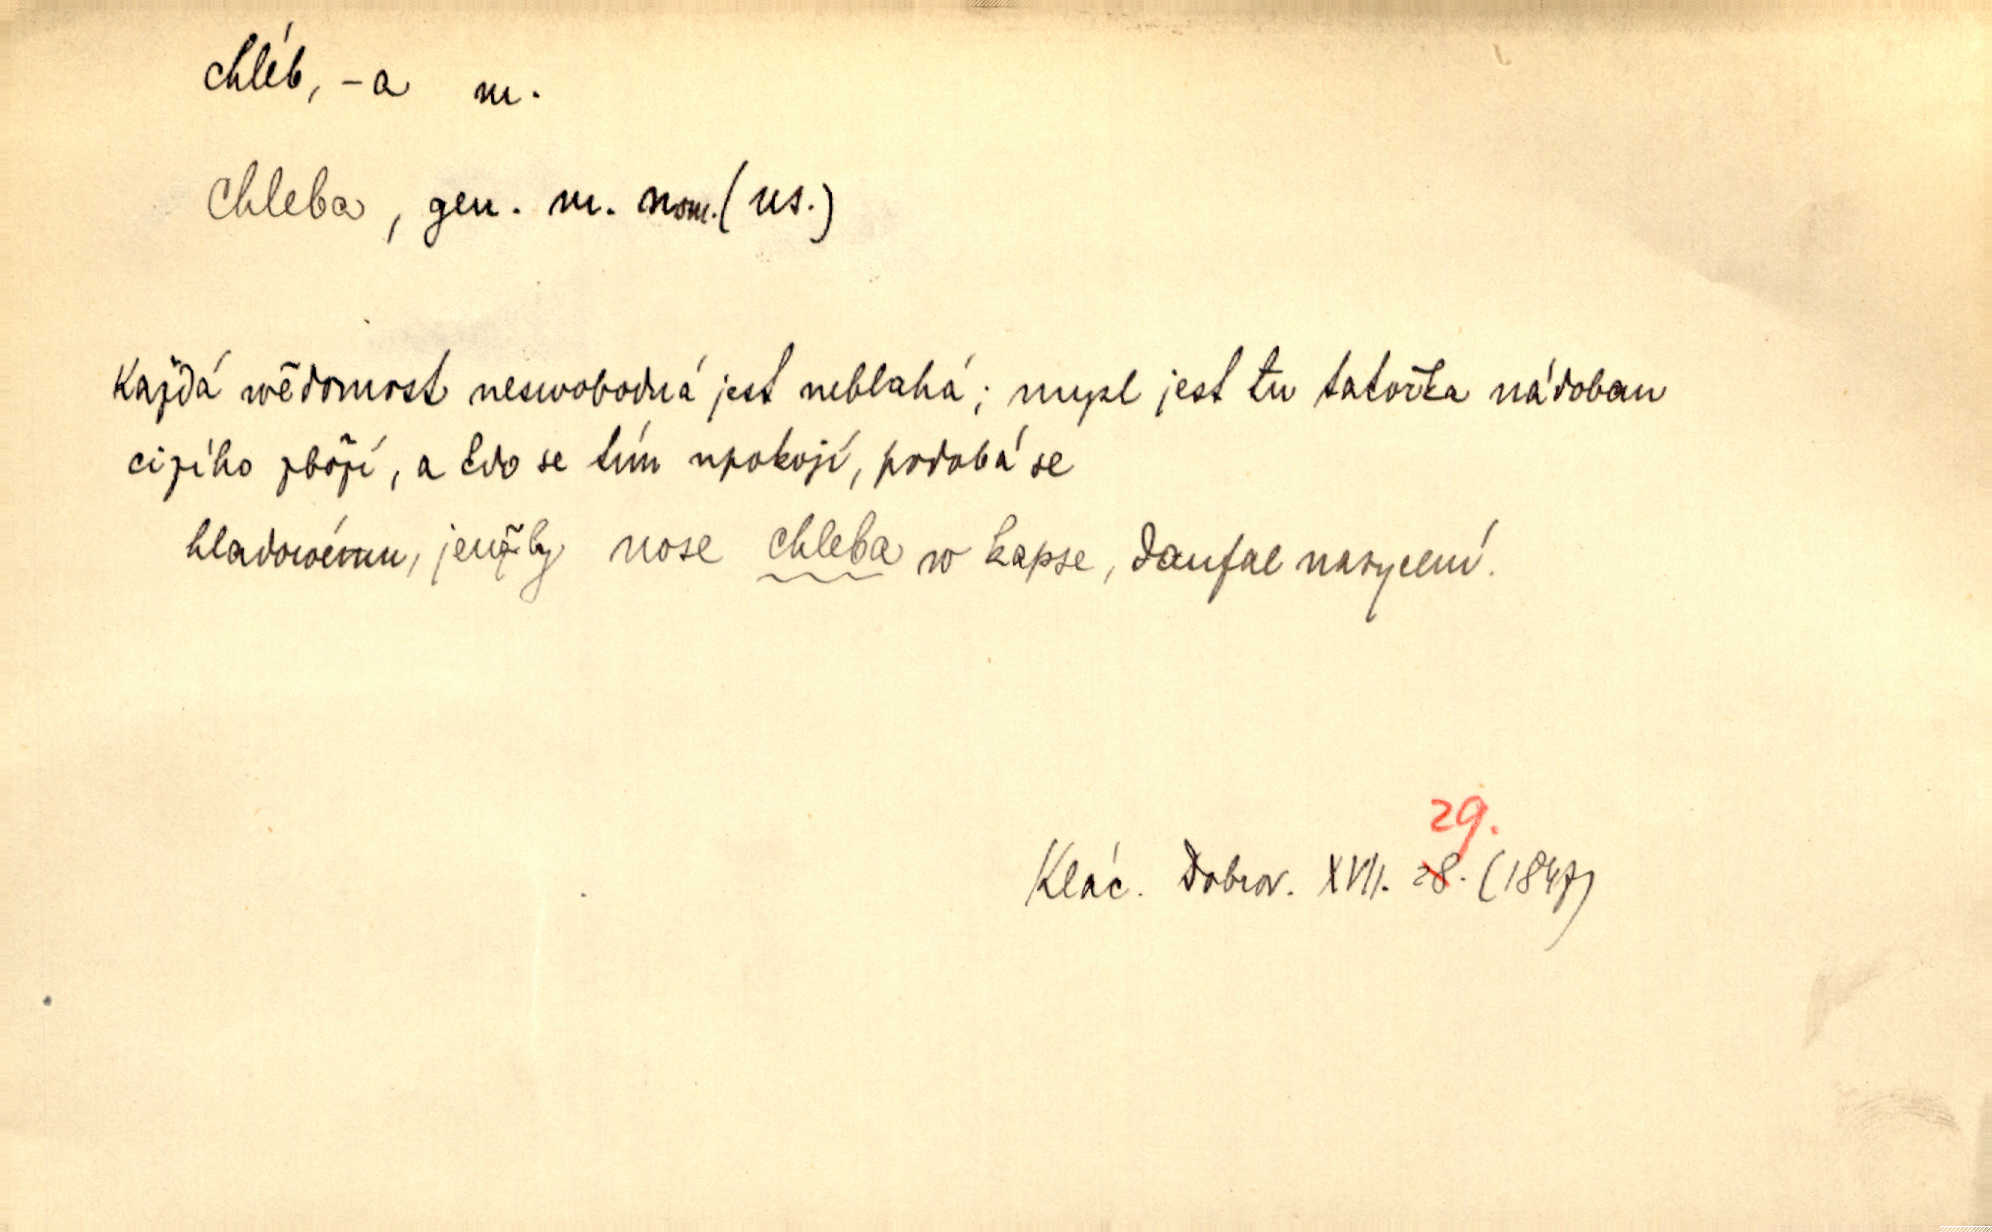 chléb, -a m.
Chleba, gen. m. nom. (us.)
Každá wědomost neswobodná jest neblahá; mysl jest tu tatoťka nádobau
cizího zboží, a kdo se tím upokojí, podobá se
hladowému, jenžby nose chleba w kapse, daufal nasycení.
29.
Klác. Dobrov. XVII. 28. (1847)